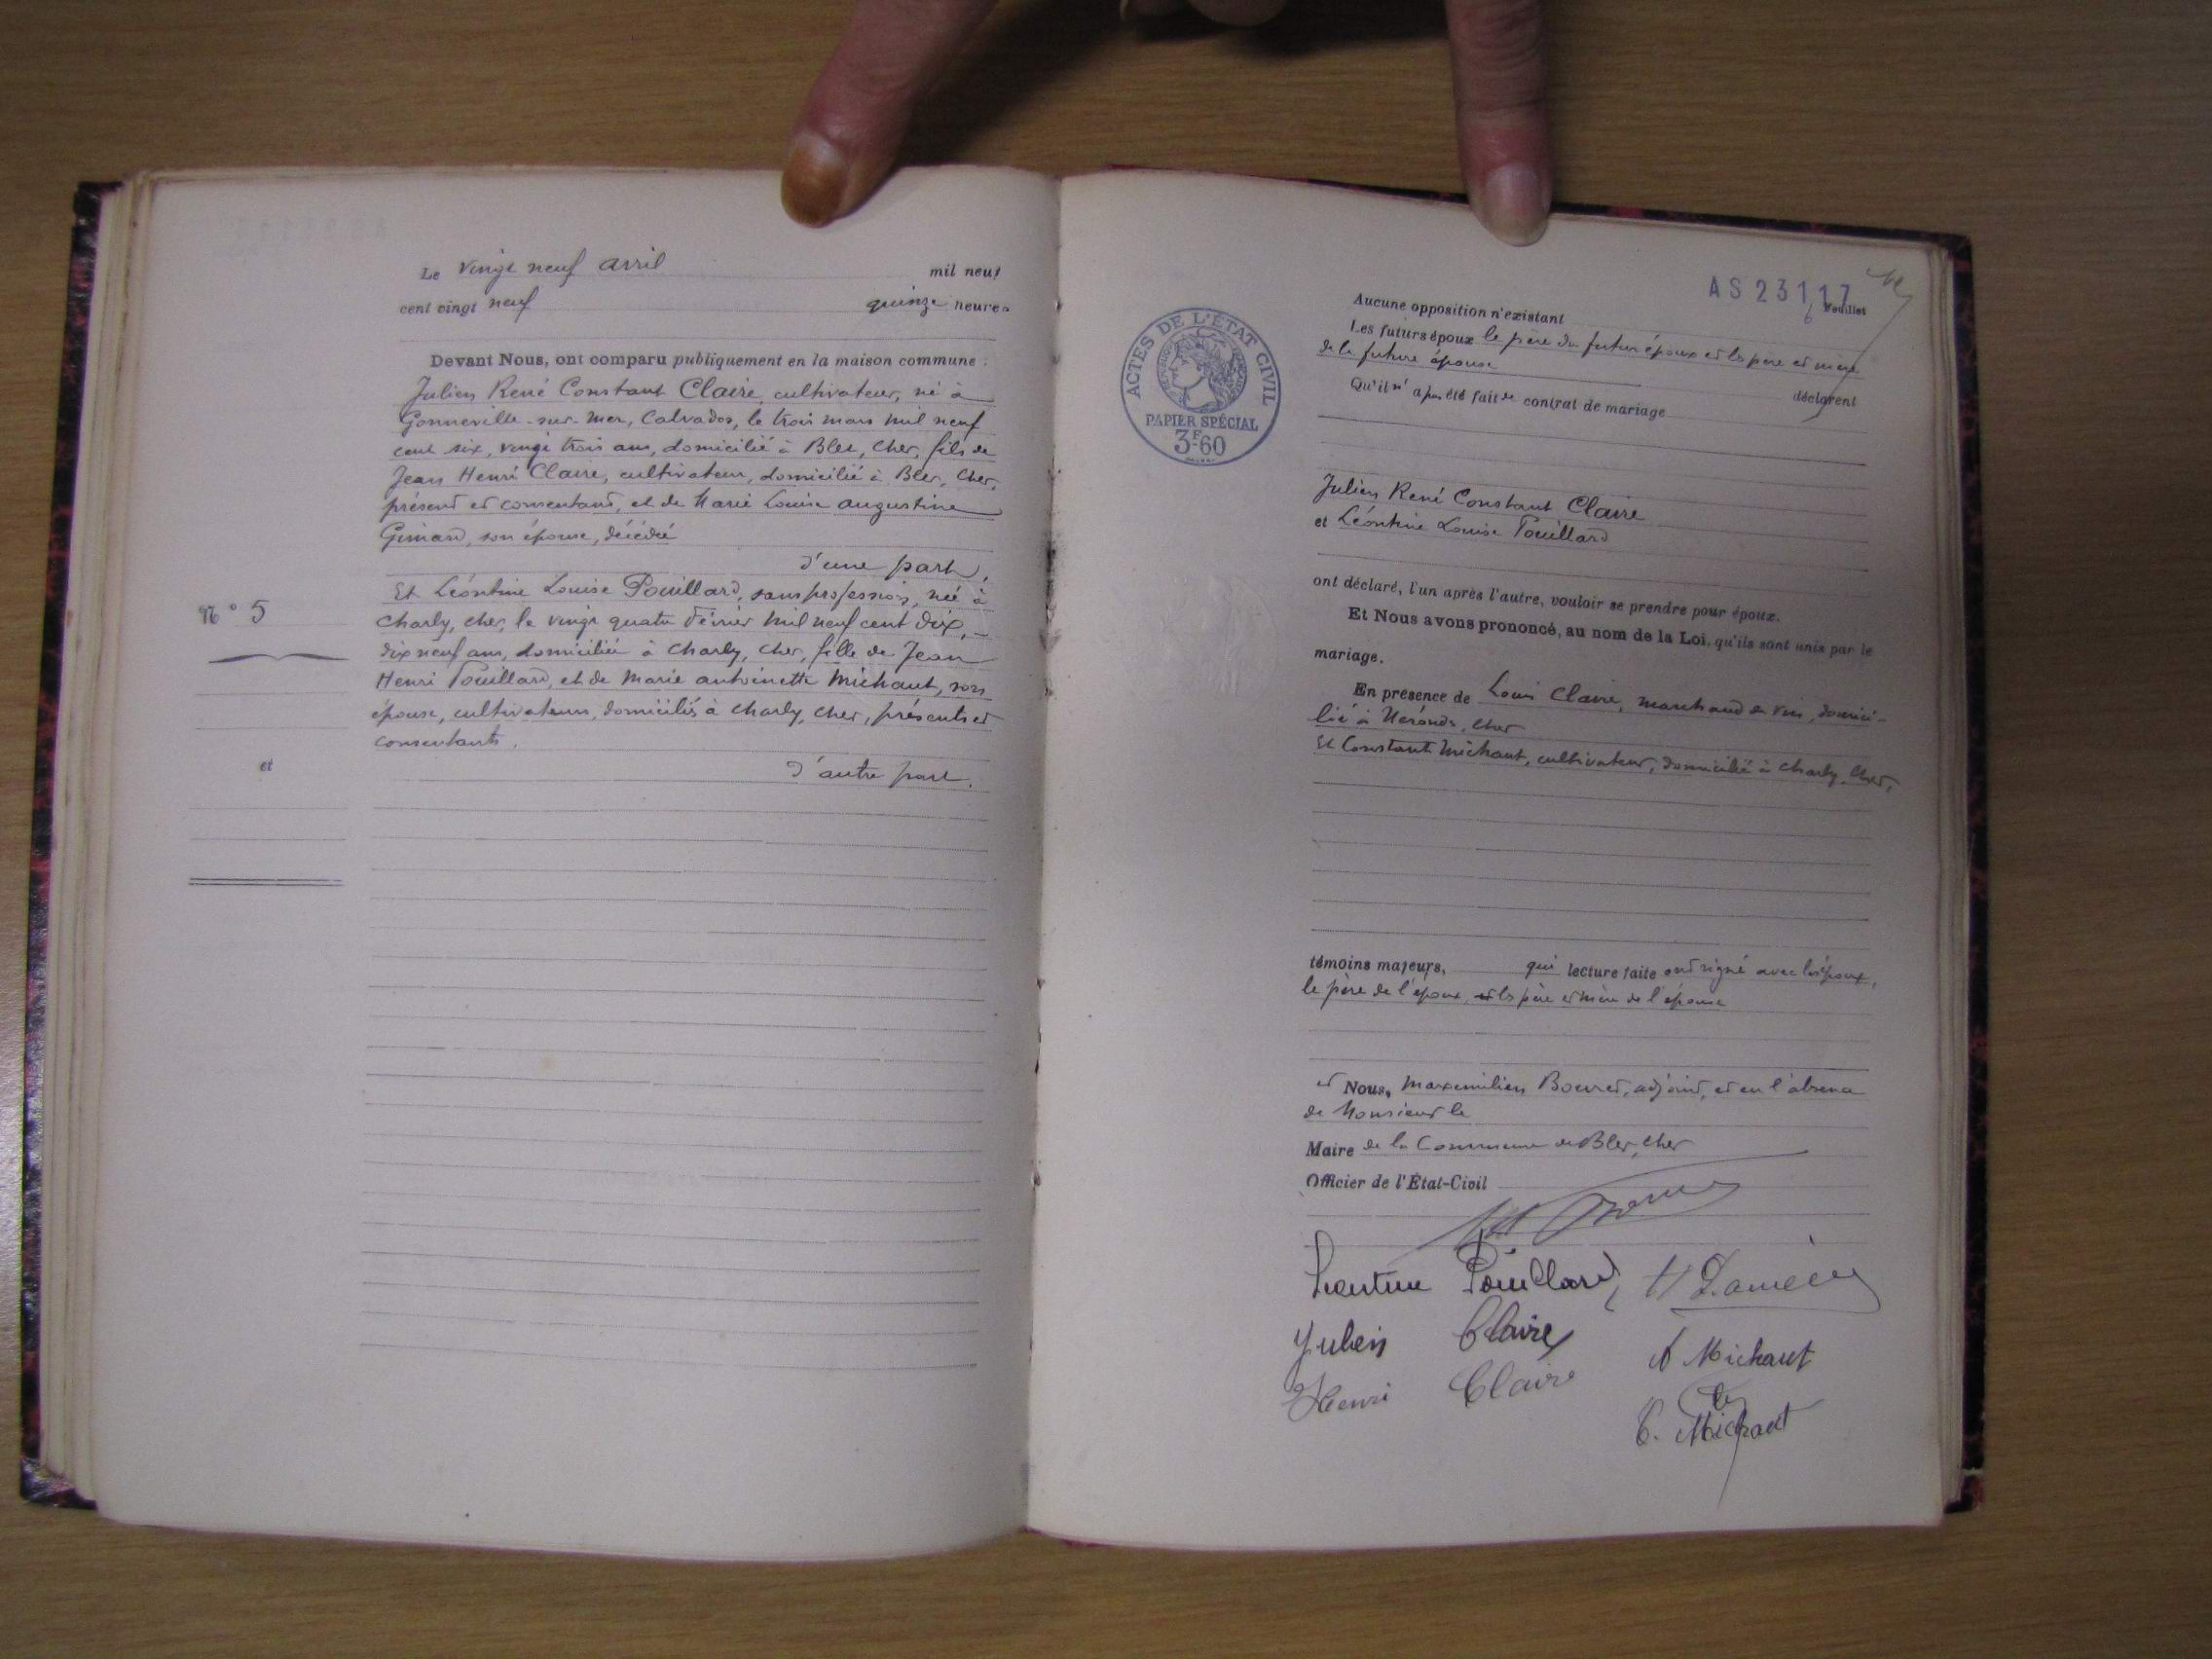 Le vingt neuf avril mil neuf
cent vingt neuf quinze heures
Devant Nous, ont comparu publiquement en la maison commune :
Julien René Constant Claire, cultivateur, né à
Gonneville-sur-Mer, Calvados, le trois mars mil neuf
cent six, vingt trois ans, domicilié à Blet, Cher, fils de
Jean Henri Claire, cultivateur, domicilié à Blet, Cher,
présent et consentant, et de Marie Louise Augustine
son épouse, décédée
d'une part,
N° 5
Et Léontine Louise Pouillard, sans profession, née à
Charly, Cher, le vingt quatre Février mil neuf cent dix,
dix neuf ans, domiciliée à Charly, Cher, fille de Jean
Henri Pouillard, et de Marie Antoinette Michaut, son
épouse, cultivateurs, domiciliés à Charly, Cher, présents et
consentants.
et
d'autre part.
ACTES DE L'ÉTAT CIVIL
PAPIER SPÉCIAL
3F60
AS 23117
Feuillet
Aucune opposition n'existant
Les futurs époux le père du futur époux et les père et mère
de la future épouse
déclarent
Qu'il n'a pas été fait de contrat de mariage
Julien René Constant Claire
et Léontine Louise Pouillard
ont déclaré, l'un après l'autre, vouloir se prendre pour époux.
Et Nous avons prononcé, au nom de la Loi, qu'ils sont unis par le
mariage.
En présence de Louis Claire, marchand de vin, domici-
lié à Nérondes, Cher
Et Constant Michaut, cultivateur, domicilié à Charly, Cher,
témoins majeurs, qui lecture faite ont signé avec les époux,
le père de l'époux, et les père et mère de l'épouse
et Nous, Maxemilien Bouret, adjoint, et en l'absence
de Monsieur le
Maire de la Commune de Blet, Cher
Officier de l'État-Civil
Léontine Pouillard
Julien Claire
A Michaut
Henri Claire
C. Michaut